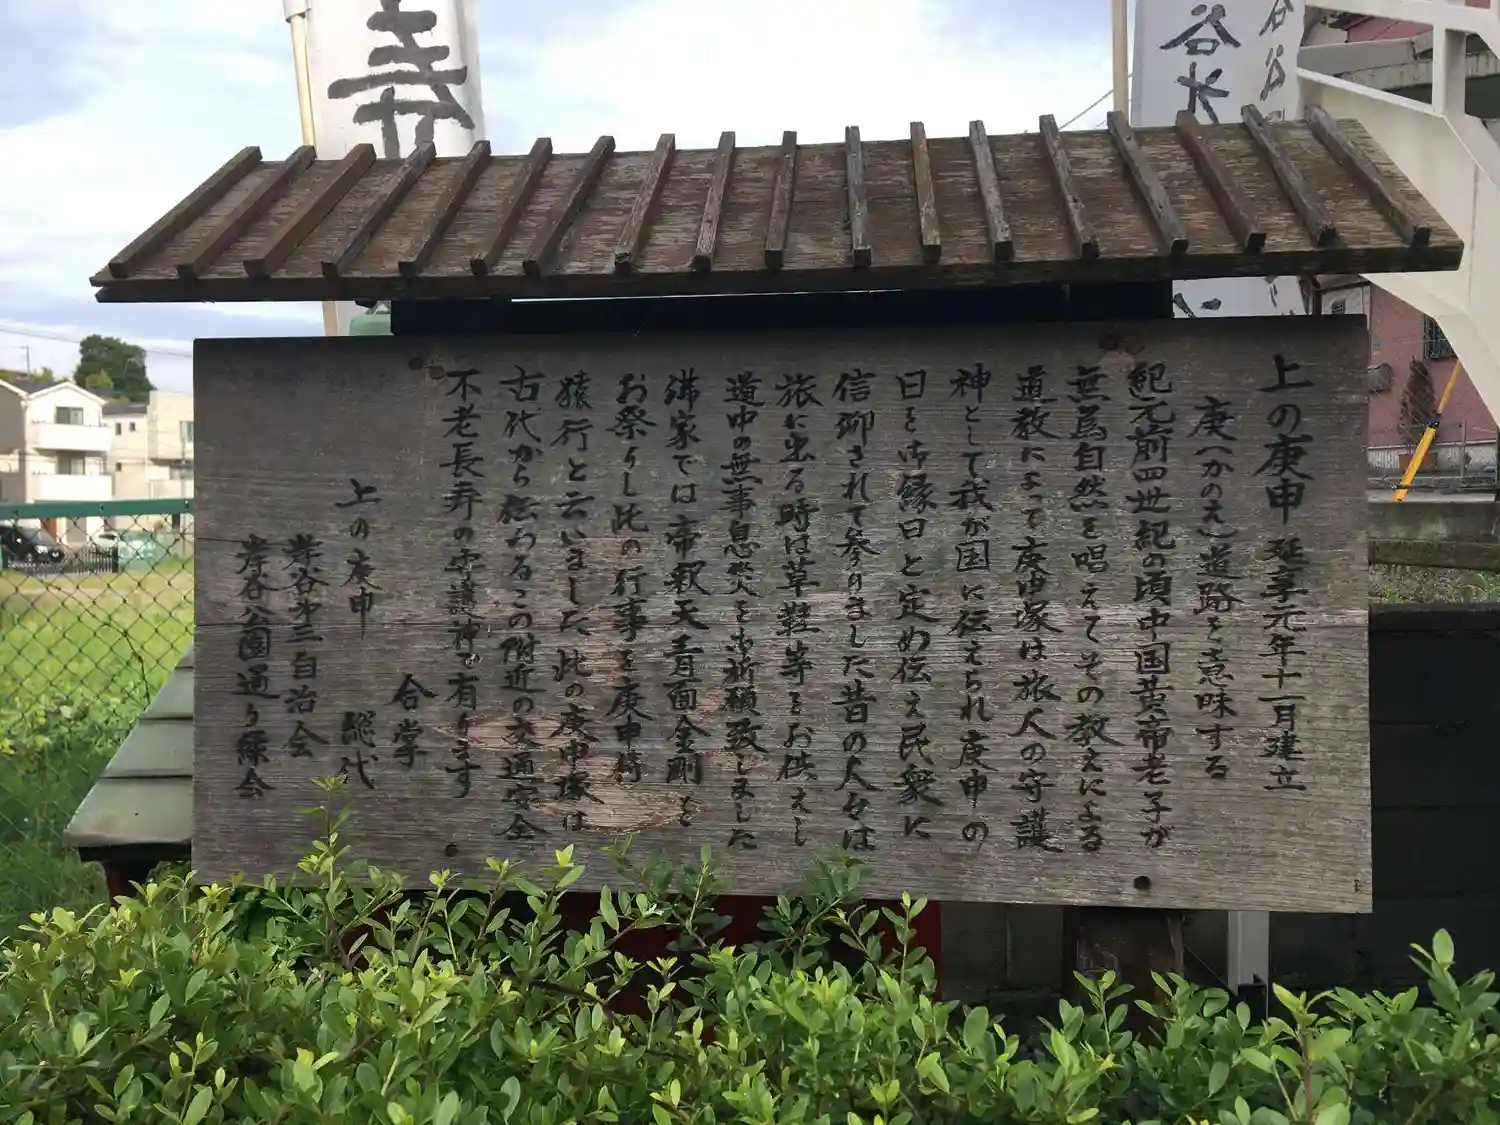 上の庚申 延享元年十一月建立
庚(かのえ)道路を意味する
紀元前四世紀の頃中国黄帝老子が
無為自然を唱えてその教えによる
道教によって庚申塚は旅人の守護
神として我が国に伝えられ庚申の
日を御縁日と定め伝え民衆に
信仰されて参りました昔の人々は
旅に出る時は草鞋等をお供えし
道中の無事息災を御祈願致しました
佛家では帝釈天青面金剛を
お祭りし此の行事を庚申待
猿行と云いました此の庚申塚は
古代から伝わるこの附近の交通安全
不老長寿の守護神で有ります
合掌
上の庚申 総代
岸谷第三自治会
岸谷公園通り緑会
寺
谷